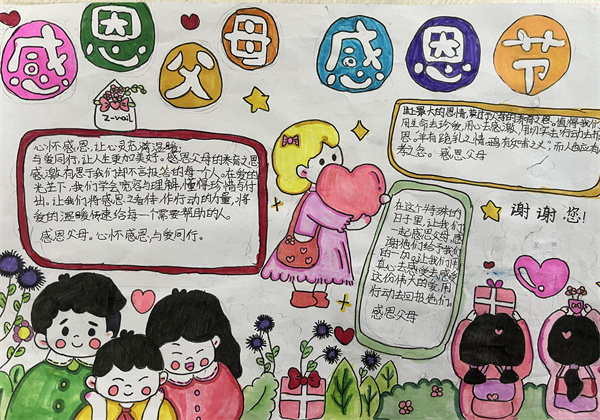 感恩父母 感恩节
z-vail
心怀感恩,让心灵充满温暖;
与爱同行,让人生更加美好。感恩父母的养育之恩
感激有恩于我们却不言报答的每个人。在爱的
光芒下,我们学会宽容与理解,懂得珍惜与付
出。让我们将感恩之看作行动的力量,将
爱的温暖传递给每一个需要帮助的人。
感恩父母。心怀感恩,与爱同行。
世上最大的恩情,莫过于父母的养育之恩。值得我们
用生命去珍爱,用心去感激,用切实行动去报
恩。羊有跪乳之情,鸦有反哺之义,而人也应有
孝之名。 感恩父母
在这个特殊的
日子里,让我们
一起感恩父母,感
谢他们给予我们
的一切。让我们用
真心去感受去感动
这份伟大的爱,用
行动去回报他们。
感恩父母
谢谢您!